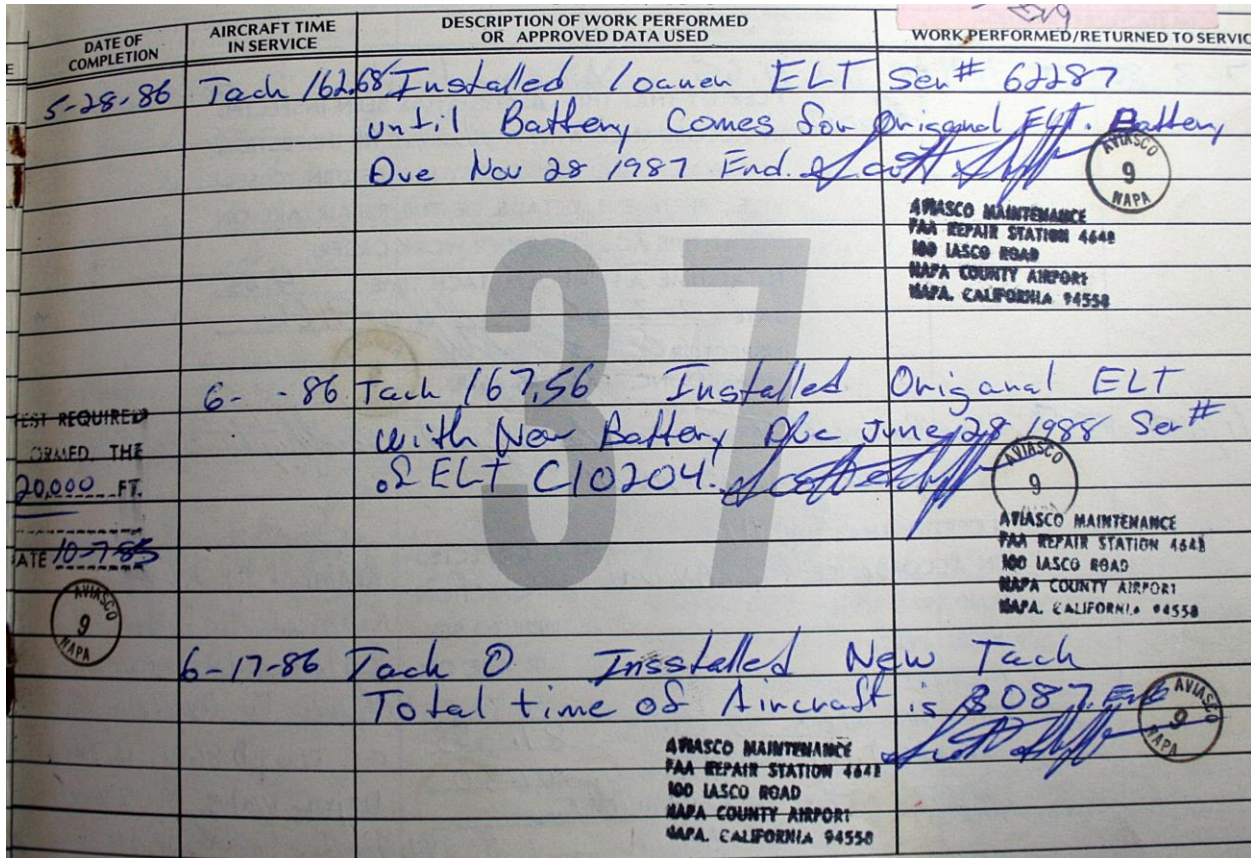 DATE OF
COMPLETION
AIRCRAFT TIME
IN SERVICE
DESCRIPTION OF WORK PERFORMED
OR APPROVED DATA USED
WORK PERFORMED/RETURNED TO SERVIC
5-28-86 Tach 162.68 Installed loaner ELT Ser# 62287
until Battery Comes for Origanal ELT. Battery
Due Nov 28 1987 End.
AVIASCO
9
NAPA
AVIASCO MAINTENANCE
FAA REPAIR STATION 4648
100 IASCO ROAD
NAPA COUNTY AIRPORT
NAPA, CALIFORNIA 94558
37
6- -86 Tach 167,56 Installed Origanal ELT
with New Battery Due June 28 1988 Ser#
of ELT C10204.
TEST REQUIRED
ORMED. THE
20,000 FT.
DATE 10-7-85
AVIASCO
9
NAPA
AVIASCO
9
AVIASCO MAINTENANCE
FAA REPAIR STATION 4648
100 IASCO ROAD
NAPA COUNTY AIRPORT
NAPA, CALIFORNIA 94558
6-17-86 Tach 0 Insstalled New Tach
Total time of Aircraft is 8087. End
AVIASCO
9
NAPA
AVIASCO MAINTENANCE
FAA REPAIR STATION 4648
100 IASCO ROAD
NAPA COUNTY AIRPORT
NAPA, CALIFORNIA 94558